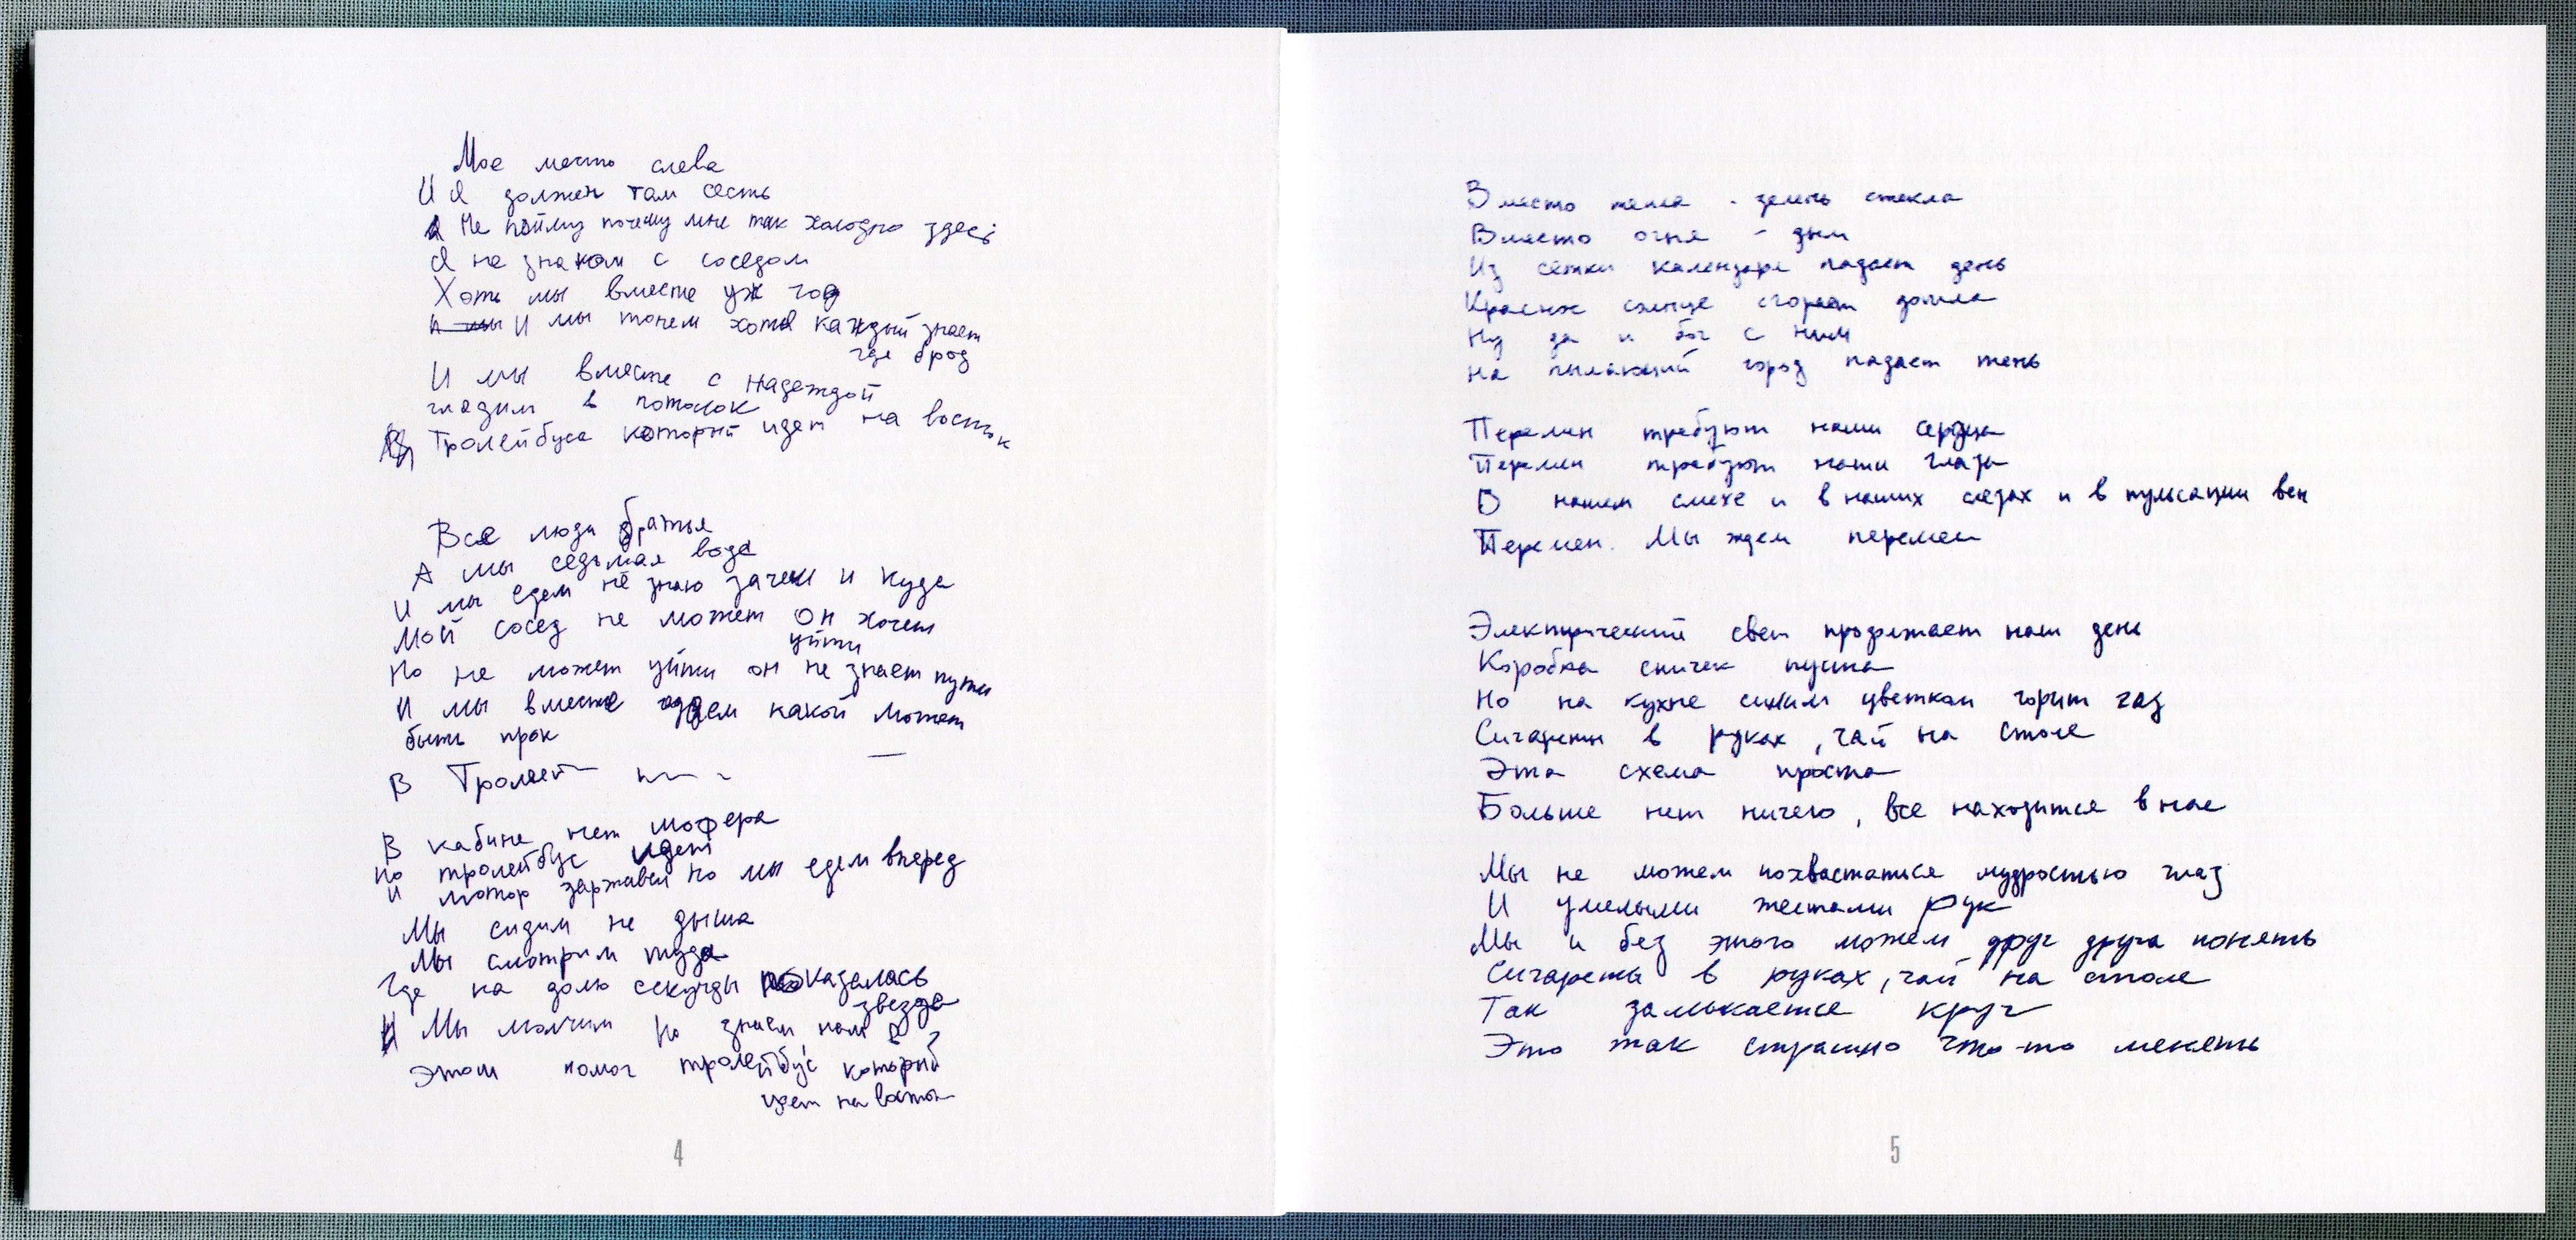 Мое место слева
И Я должен там сесть
Не пойму почему мне так холодно здесь
Я не знаком с соседом
Хоть мы вместе уж год
И мы И мы тонем хотя каждый знает
где брод
И мы вместе с надеждой
гладим в потолок
Тролейбуса который идет на восток
Все люди братья
А мы седьмая вода
И мы едем не знаю зачем и куда
Мой сосед не может он хочет
уйти
Но не может уйти он не знает пути
И мы вместе гадаем какой может
быть прок
В Тролей
В кабине нет шофера
но тролейбус идет
И мотор заржавел но мы едем вперед
Мы сидим не дыша
Мы смотрим туда
Где на долю секунды показалась
звезда
Мы молчим но знаем, нам в
этом помог тролейбус который
идет на восток
4
Вместо тепла - зелень стекла
Вместо огня - дым
Из сетки календаря падает день
Красное солнце сгорает дотла
Ну да и бог с ним
на пылающий город падает тень
Перемен требуют наши сердца
Перемен требуют наши глаза
В нашем смехе и в наших слезах и в пульсации вен
Перемен. Мы ждем перемен
Электрический свет продолжает наш день
Коробка спичек пуста
Но на кухне синим цветком горит газ
Сигареты в руках, чай на столе
Эта схема проста
Больше нет ничего, все находится в нас
Мы не можем похвастаться мудростью глаз
И умелыми жестами рук
Мы и без этого можем друг друга понять
Сигареты в руках, чай на столе
Так замыкается круг
Это так страшно что-то менять
5